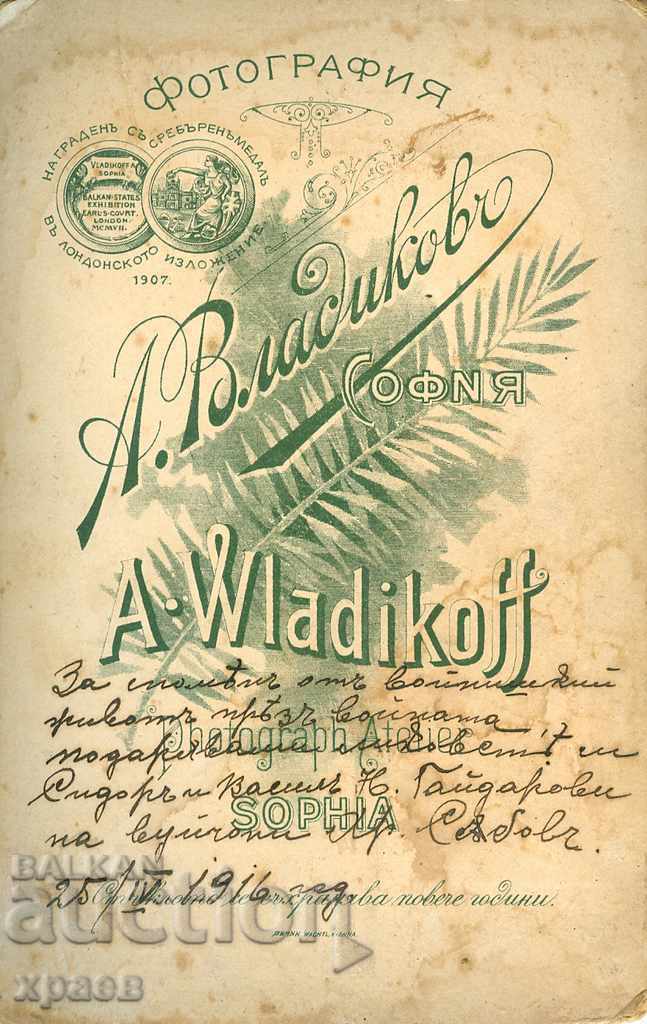 ФОТОГРАФИЯ
НАГРАДЕНЪ СЪ СРЕБЪРЕНЪ МЕДАЛЪ
ВЪ ЛОНДОНСКОТО ИЗЛОЖЕНИЕ
1907.
VLADIKOFF A
SOPHIA
BALKAN-STATES
EXHIBITION
EARL'S-COURT.
LONDON
MCMVII.
А. Владиковъ
СОФИЯ
A. Wladikoff
Photograph Atelier
SOPHIA
За споменъ отъ войнишкий
животъ прѣзъ войната
Сидоръ и Василъ Н. Гайдарови
на вуйчони Хр. Сѫбовъ.
25/IV 1916 год
повече години.
BALKAN
auction
храев